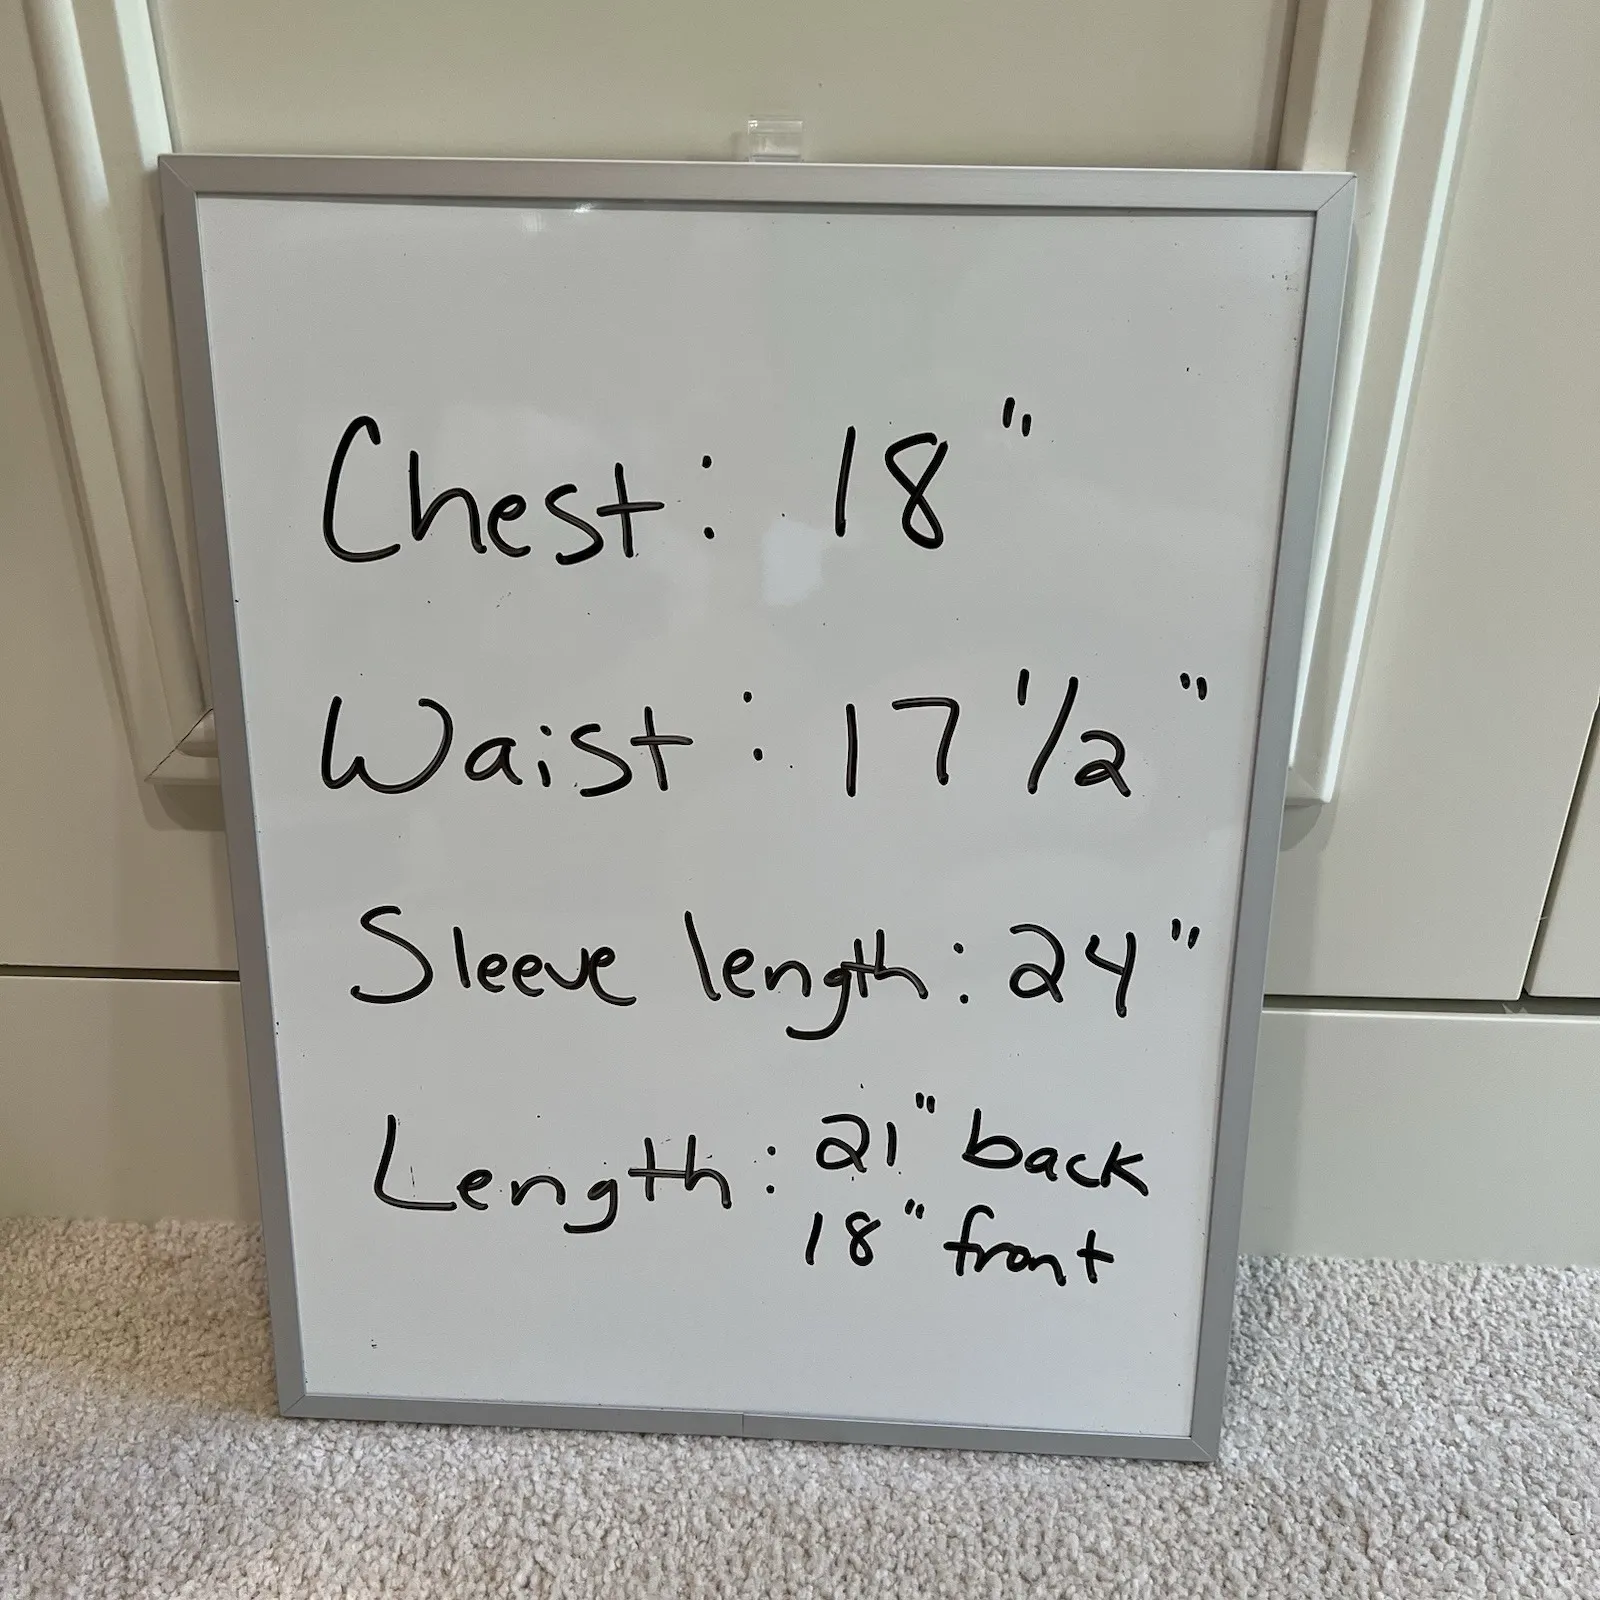 Chest: 18"
Waist: 17 1/2"
Sleeve length: 24"
Length: 21" back
18" front